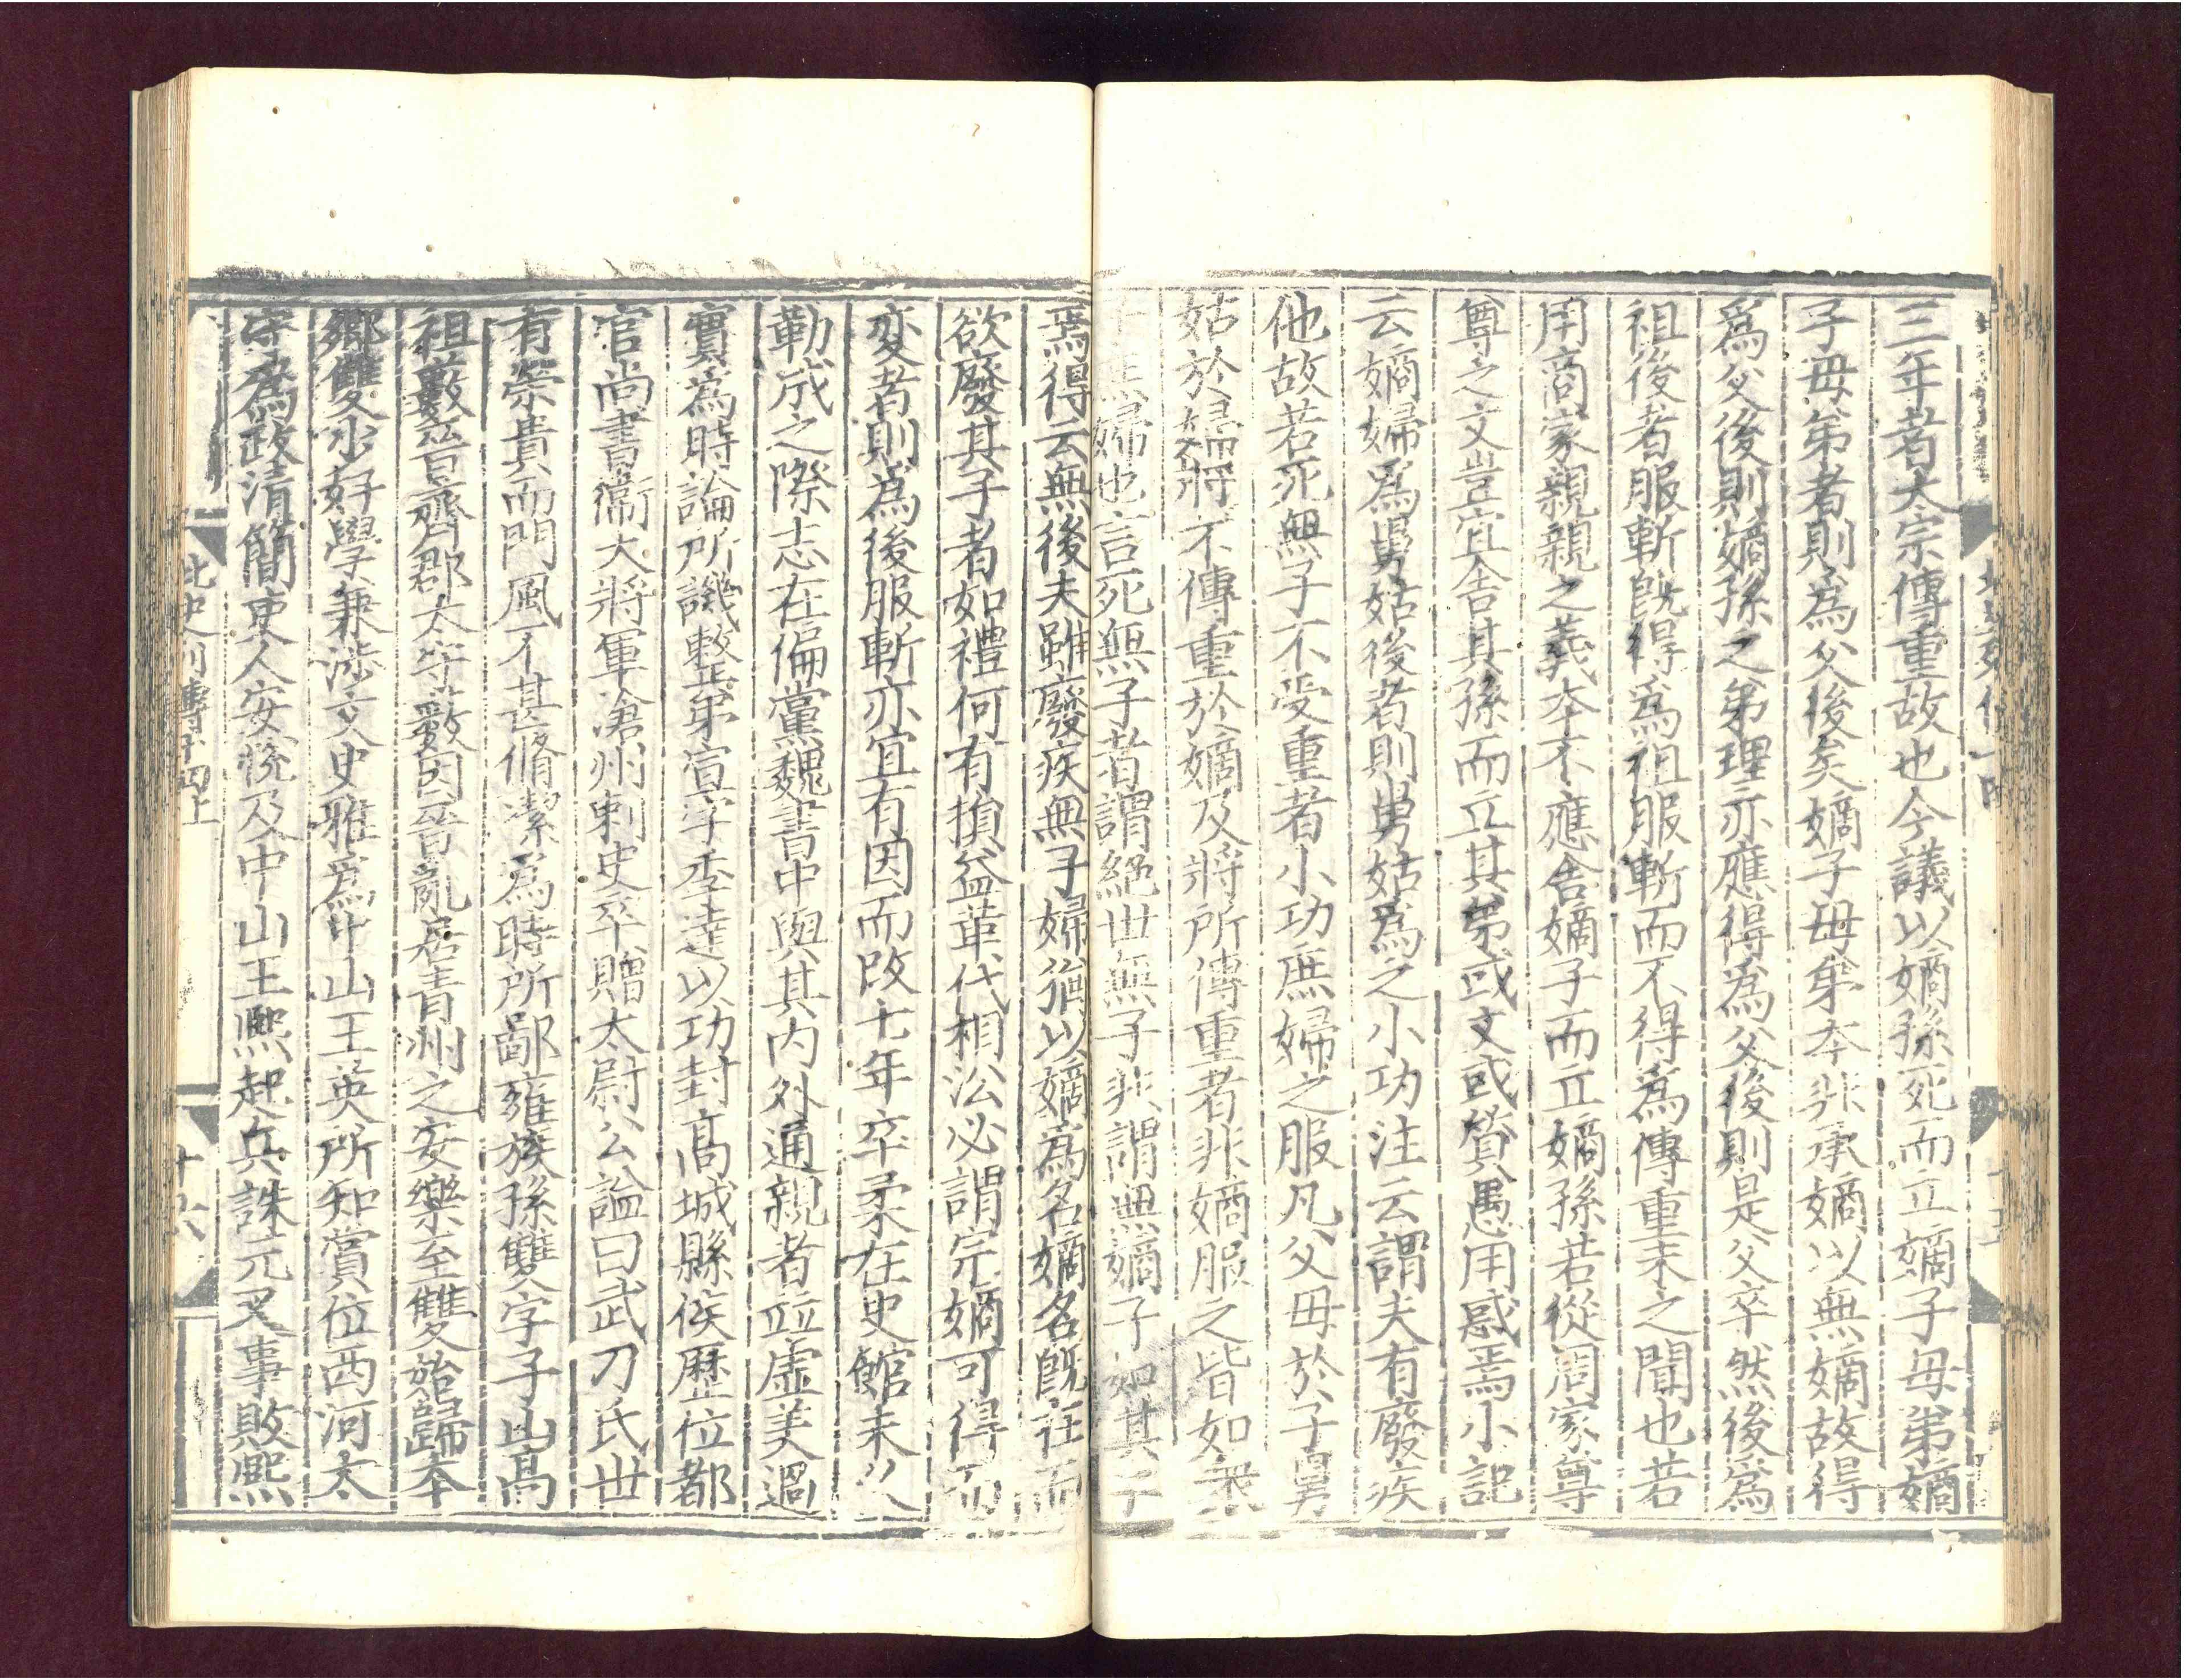 三年者大宗傳重故也今議以嫡孫死而立嫡子母弟嫡
子母弟者則為父後矣嫡子母弟本非承嫡以無嫡故得
爲父後則嫡孫之弟理亦應得為父後則是父卒然後爲
祖後者服斬旣得爲祖服斬而不得爲傳重未之聞也若
用商家親親之義本不應舍嫡子而立嫡孫若從周家尊
尊之文豈宜舍其孫而立其弟或文或質愚用惑焉小記
云嫡婦爲舅姑後者則舅姑為之小功注云謂夫有廢疾
他故若死無子不受重者小功庶婦之服凡父母於子舅
姑於婦將不傳重於嫡及將所傳重者非嫡服之皆如衆
婦也言死無子者謂絕世無子非謂無嫡子如其子
焉得云無後夫雖廢疾無子婦猶以嫡為名嫡名旣在而
欲廢其子者如禮何有損益革代相沿必謂宗嫡可得而
変者則為後服斬亦宜有因而改七年卒柔在史館未久
勒成之際志在偏黨魏書中與其内外通親者並虛美過
實為時論所譏整弟宣字季達以功封高城縣侯歷位都
官尚書衞大將軍滄州刺史卒贈太尉公謚曰武刀氏世
有榮貴而門風不甚脩潔為時所鄙雍族孫雙字子山高
祖藪晉齊郡太守藪因晉亂居青州之安樂至雙始歸本
鄉雙少好學兼涉文史雅爲中山王英所知賞位西河太
守為政清簡吏人安悅及中山王熙起兵誅元叉事敗熙
北史列傳十四上
十六